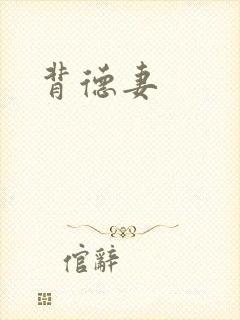 背德妻
倌辭